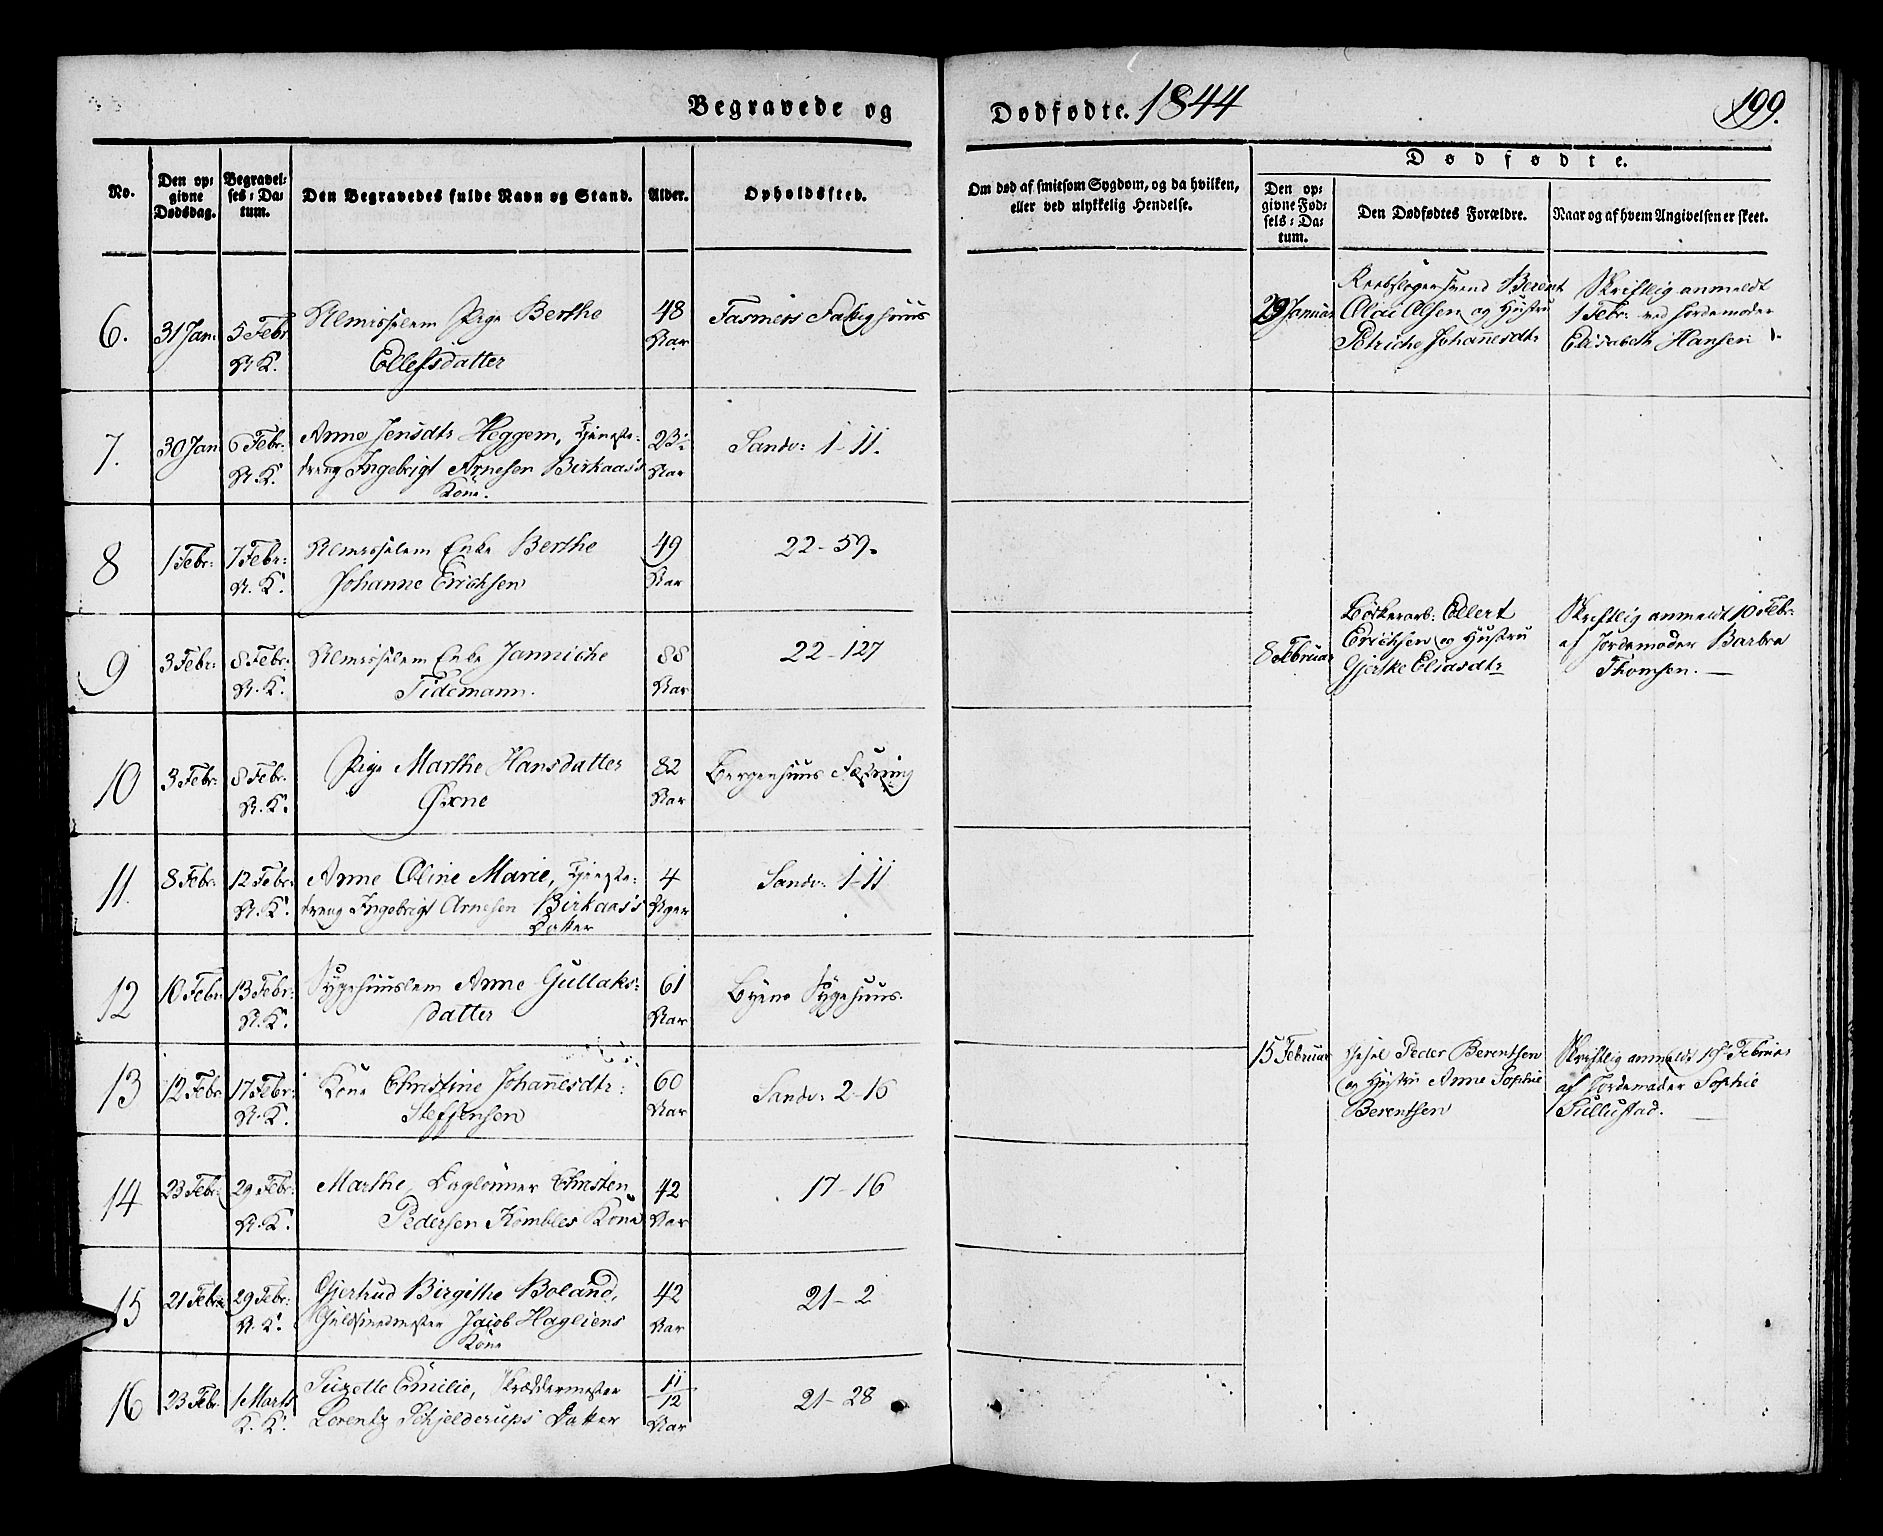 Begravede og Dødfødte. 1844
199.
No.
Den opgivne Dødsdag.
Begravelses-Datum.
Den Begravedes fulde Navn og Stand.
Alder.
Opholdssted.
Om død af smitsom Sygdom, og da hvilken,
eller ved ulykkelig Hendelse.
Dødfødte.
Den opgivne Fødsels-Datum.
Den Dødfødtes Forældre.
Naar og af hvem Angivelsen er skeet.
6. 31 Jan: 5 Febr Almisselem Pige Berthe 48 Tasmers Fattighuus
N. K. Ellefsdatter Aar
29 Januar Reebslagersvend Berent Skriftlig anmeldt
Olai Olsen og Hustru 1 Febr: ved Jordemoder
Petriche Johannesdtr Elisabeth Hansen
7. 30 Jan 6 Febr: Anne Jensdtr Heggem, Tjeneste- 23 Sandv: 1-11.
N. K. dreng Ingebrigt Arnesen Birkaas's Aar
Kone.
8 1 Febr: 7 Febr: Almisselem Enke Berthe 49 22-59.
N. K. Johanne Erichsen Aar
9 3 Febr: 8 Febr: Almisselem Enke Janniche 88 22-127
N. K. Tidemann. Aar
8 Februar Bødkerarb: Ellert Skriftlig anmeldt 10 Febr:
Erichsen og Hustru af Jordemoder Barbra
Gjertke Eliasdtr Thomsen.
10 3 Febr: 8 Febr. Pige Marthe Hansdatter 82 Bergenhuus Fæstning
N. K. Øxne Aar
11. 8 Febr: 12 Febr: Anne Oline Marie, Tjeneste- 4 Sandv: 1-11
N. K. dreng Ingebrigt Arnesen Birkaas's Uger
Datter
12 10 Febr 13 Febr: Sygehuuslem Anne Gullaks- 61 Byens Sygehuus.
N. K. datter Aar
13 12 Febr 17 Febr: Kone Christine Johannesdtr: 60 Sandv: 2-16
N. K. Steffensen Aar
15 Februar Peder Berentsen Skriftlig anmeldt 17 Februar
og Hustru Anne Sophie af Jordemoder Sophie
Berentsen Gullustad.
14 23 Febr: 29 Febr: Marthe, Daglønner Christen 42 17-16
N. K. Pedersen Kombles Kone Aar
15 21 Febr: 29 Febr: Gjertrud Birgithe Boland, 42 21-2
N. K. Guldsmedmester Jacob Hagliens Aar
Kone
16 23 Febr. 1 Marts Suzette Emilie, Skræddermester 11/12 21-28
K. K. Lorentz Schjelderups Datter Aar